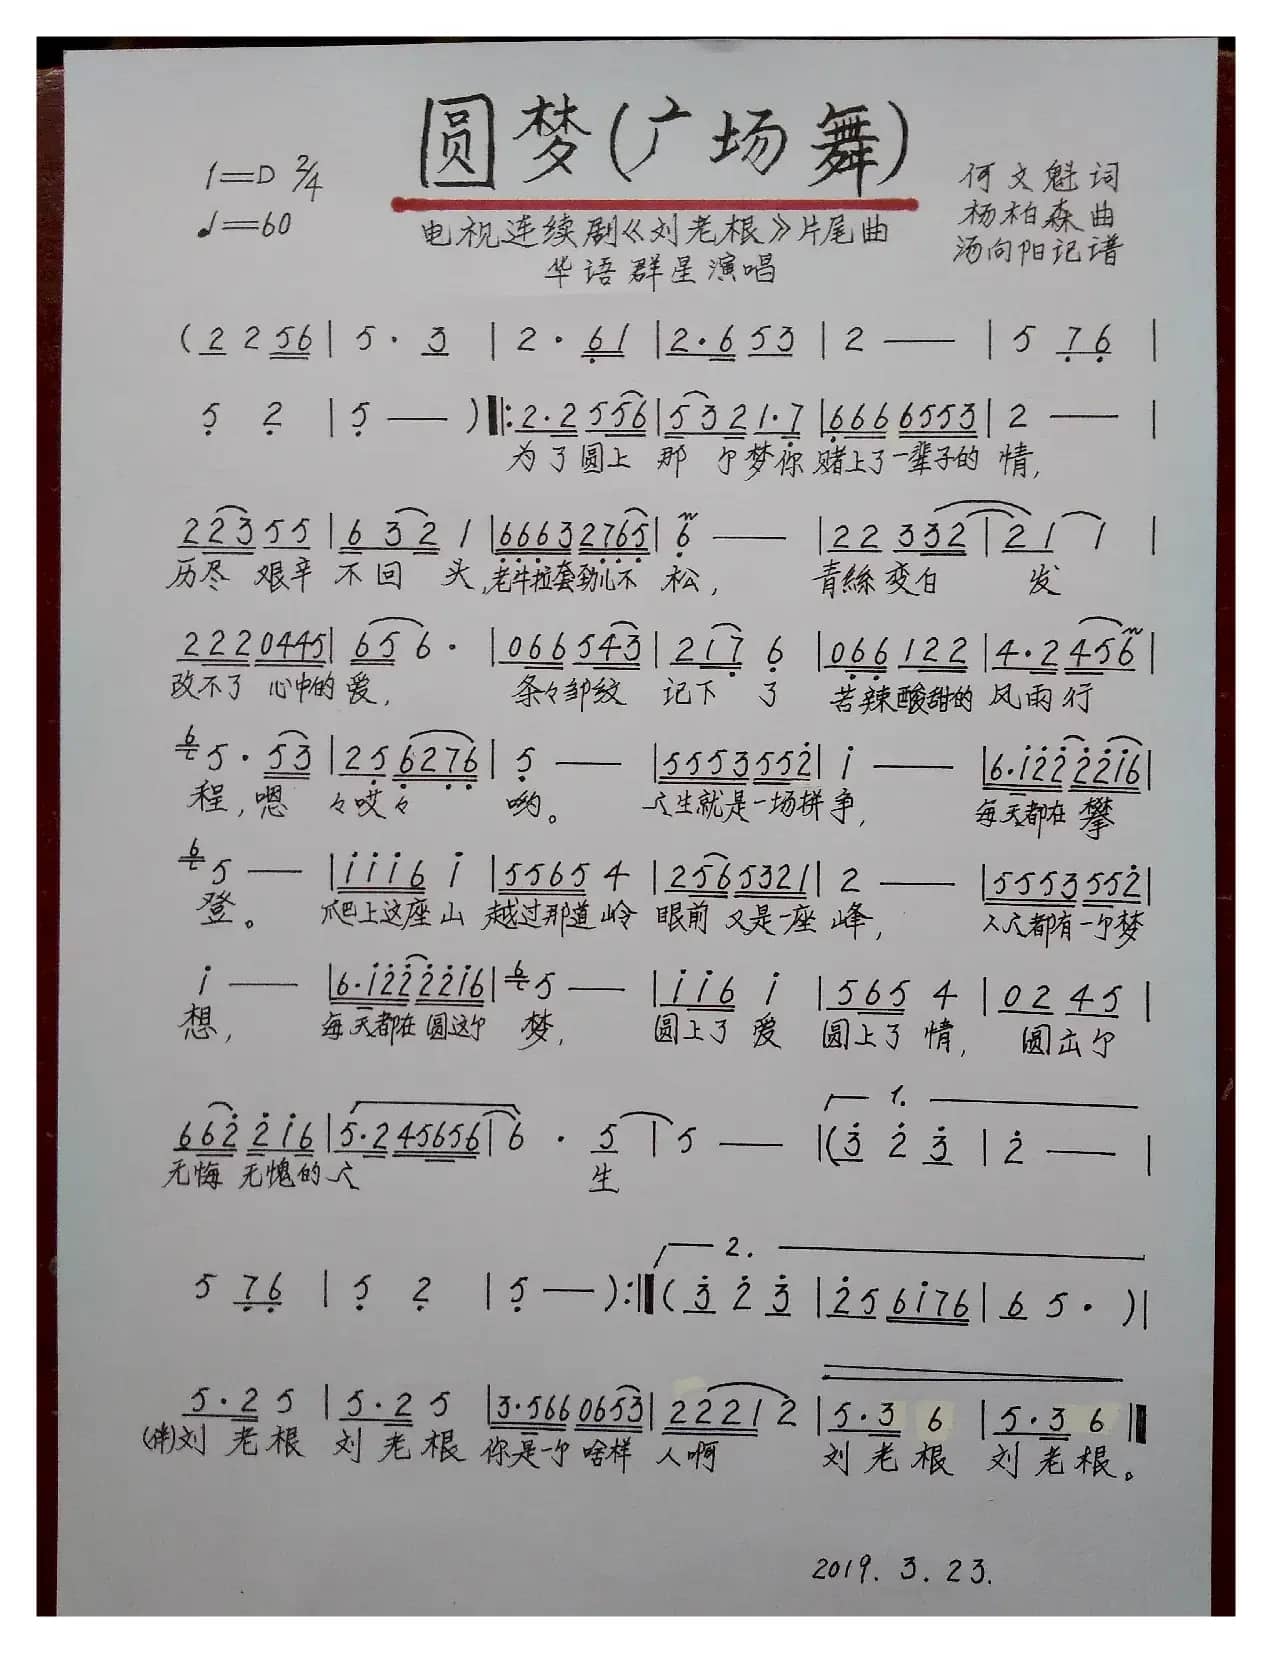 圆梦(广场舞)
1=D 2/4
♩=60
何文魁词
杨柏森曲
汤向阳记谱
电视连续剧《刘老根》片尾曲
华语群星演唱
(2 2 56 | 5 · 3 | 2 · 61 | 2·6 53 | 2 — | 5 76 |
5 2 | 5 — ) ‖: 2·2 556 | 532 1·7 | 666 6553 | 2 — |
为了圆上 那 个梦你 赌上了一辈子的 情,
223 55 | 6 32 1 | 6663 2765 | 6 — | 22 332 | 21 1 |
历尽 艰辛 不回 头, 老牛拉套劲儿不 松, 青絲变白 发
222 0445 | 656 · | 066 543 | 217 6 | 066 122 | 4·2 456 |
改不了 心中的 爱, 条々邹纹 记下 了 苦辣酸甜的 风雨行
6 5 · 53 | 25 6276 | 5 — | 5553 552 | 1 — | 6·122 2216 |
程,嗯 々哎々 哟。 人生就是一场拼 争, 每天都在 攀
6 5 — | 1116 1 | 5565 4 | 256 5321 | 2 — | 5553 552 |
登。 爬上这座山 越过那道 岭 眼前 又是一座 峰, 人人都有一个梦
1 — | 6·122 2216 | 6 5 — | 116 1 | 565 4 | 02 45 |
想, 每天都在 圆这个 梦, 圆上了 爱 圆上了 情, 圆出个
1.
662 216 | 5·2 45656 | 6 · 5 | 5 — | (3 2 3 | 2 — |
无悔 无愧的 人 生
2.
5 76 | 5 2 | 5 — ) :‖ (3 2 3 | 25 6176 | 6 5 · ) |
5·2 5 | 5·2 5 | 3·566 0653 | 2221 2 | 5·3 6 | 5·3 6 ‖
(伴)刘 老根 刘 老根 你是一个 啥样 人啊 刘 老根 刘 老根。
2019.3.23.